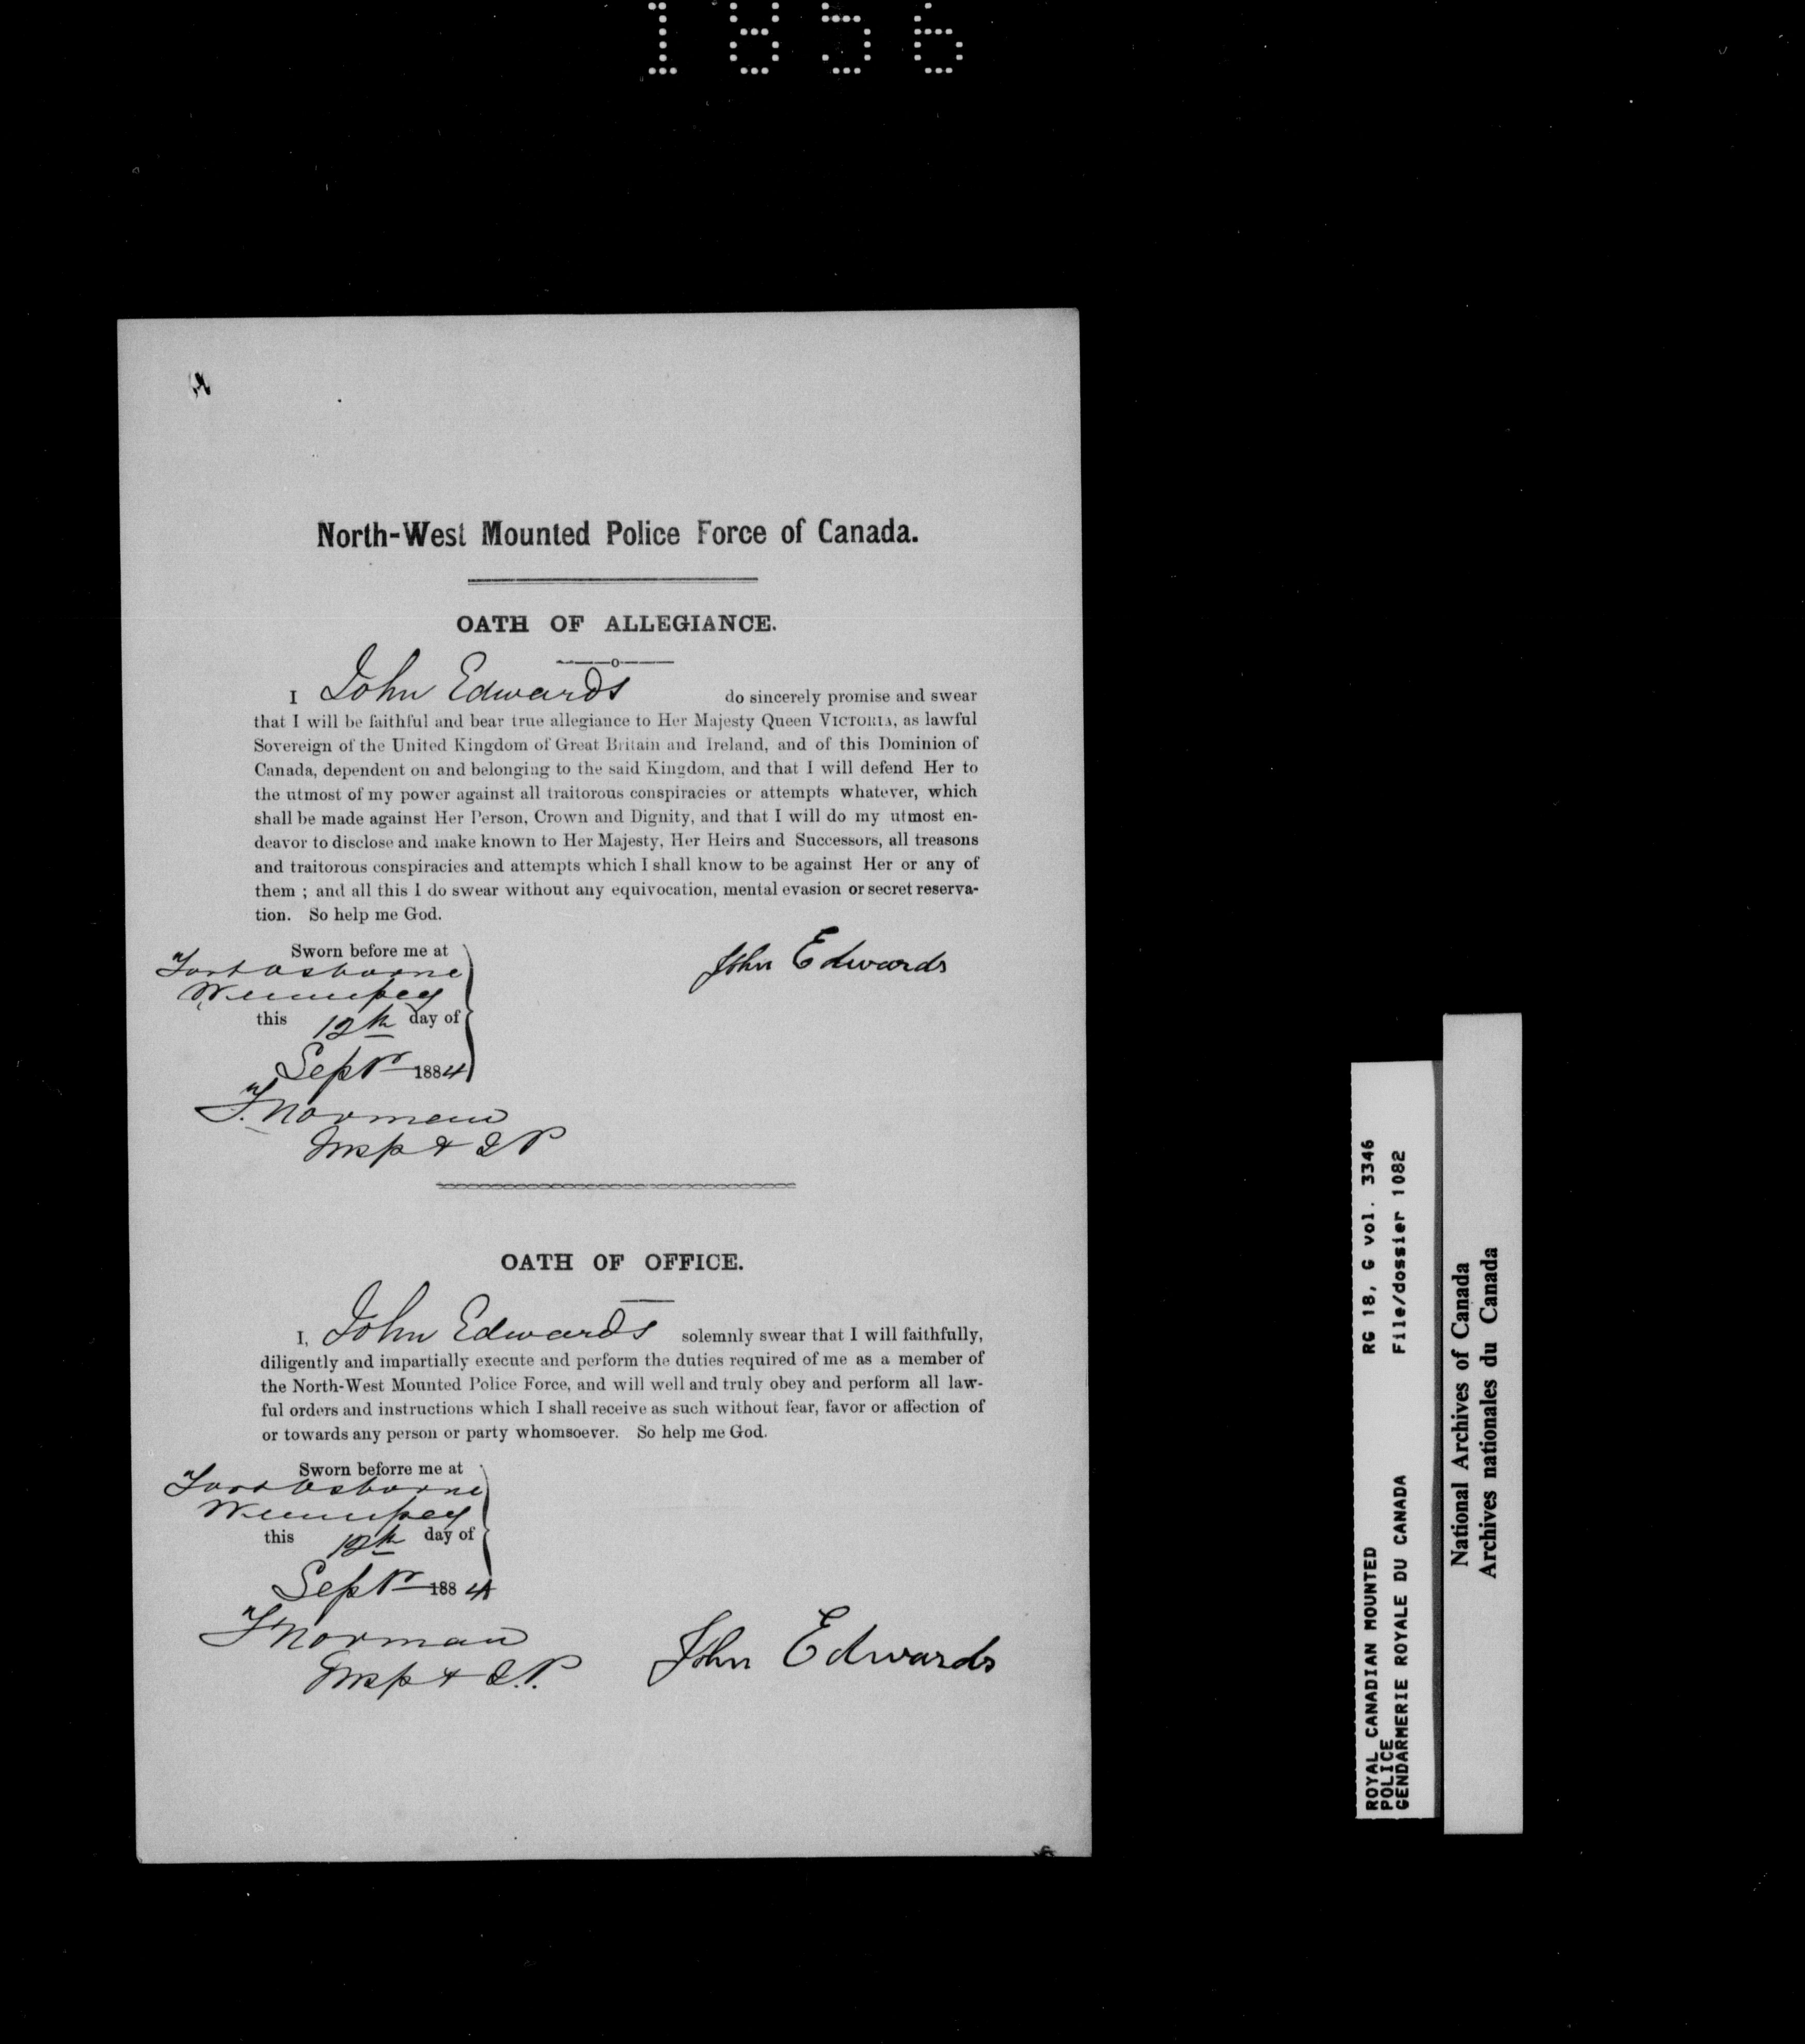 1856
North-West Mounted Police Force of Canada.
OATH OF ALLEGIANCE.
I John Edwards do sincerely promise and swear
that I will be faithful and bear true allegiance to Her Majesty Queen VICTORIA, as lawful
Sovereign of the United Kingdom of Great Britain and Ireland, and of this Dominion of
Canada, dependent on and belonging to the said Kingdom, and that I will defend Her to
the utmost of my power against all traitorous conspiracies or attempts whatever, which
shall be made against Her Person, Crown and Dignity, and that I will do my utmost en-
deavor to disclose and make known to Her Majesty, Her Heirs and Successors, all treasons
and traitorous conspiracies and attempts which I shall know to be against Her or any of
them ; and all this I do swear without any equivocation, mental evasion or secret reserva-
tion. So help me God.
Sworn before me at
Fort Osborne
Winnipeg
this 12th day of
Septr 1884
John Edwards
F. Norman
Inspt & J P
OATH OF OFFICE.
I, John Edwards solemnly swear that I will faithfully,
diligently and impartially execute and perform the duties required of me as a member of
the North-West Mounted Police Force, and will well and truly obey and perform all law-
ful orders and instructions which I shall receive as such without fear, favor or affection of
or towards any person or party whomsoever. So help me God.
Sworn beforre me at
Fort Osborne
Winnipeg
this 12th day of
Septr 1884
F Norman
Inspt & J.P.
John Edwards
ROYAL CANADIAN MOUNTED RG 18, G vol. 3346
POLICE
GENDARMERIE ROYALE DU CANADA File/dossier 1082
National Archives of Canada
Archives nationales du Canada